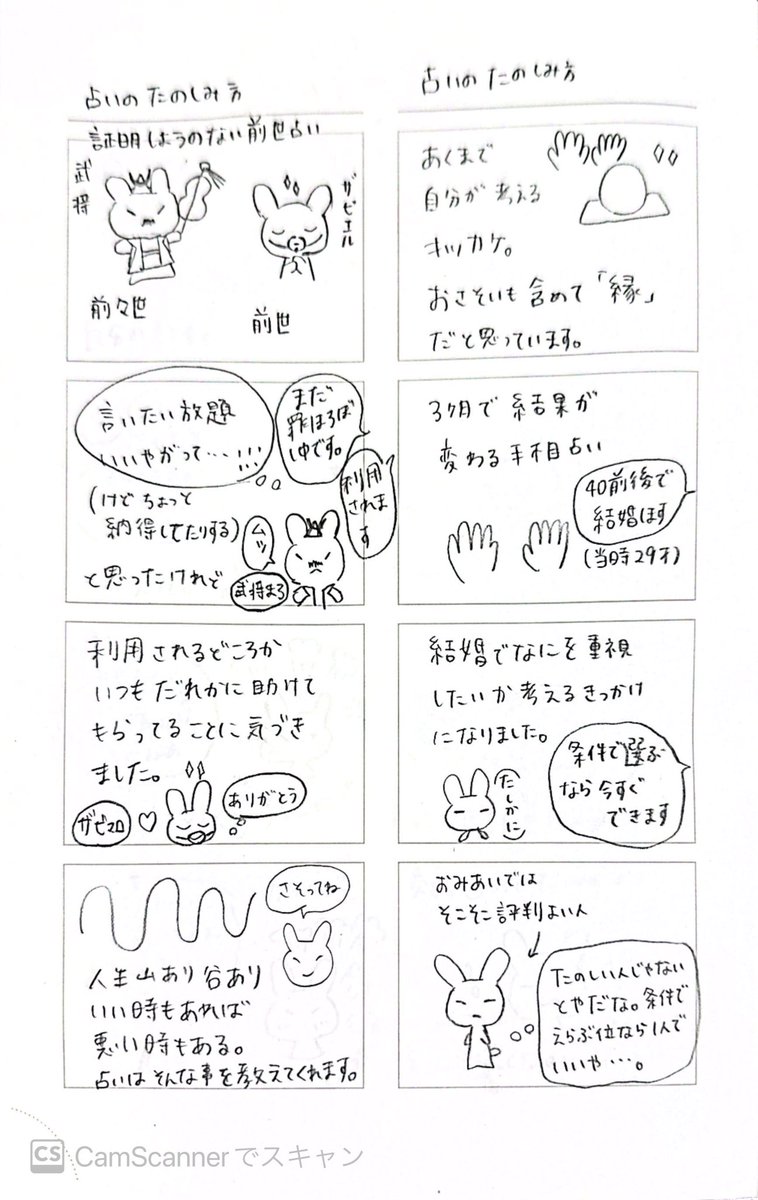 占いのたのしみ方
あくまで
自分が考える
キッカケ。
おさそいも含めて「縁」
だと思っています。
3ヶ月で結果が
変わる手相占い
40前後で
結婚ほす
(当時29才)
結婚でなにを重視
したいか考えるきっかけ
になりました。
条件で選ぶ
なら今すぐ
できます
(たしかに)
おみあいでは
そこそこ評判よい人
たのしい人じゃない
とやだな。条件で
えらぶ位なら1人で
いいや…。
占いのたのしみ方
証明しようのない前世占い
武将
ザビエル
前々世
前世
言いたい放題
いいやがって…!!!
まだ
罪ほろぼ
し中です。
利用
されま
す
(けどちょっと
納得してたりする)
ムッ
と思ったけれど
武将まろ
利用されるどころか
いつもだれかに助けて
もらってることに気づき
ました。
ありがとう
ザビマロ
さそってね
人生山あり谷あり
いい時もあれば
悪い時もある。
占いはそんな事を教えてくれます。
CS CamScannerでスキャン